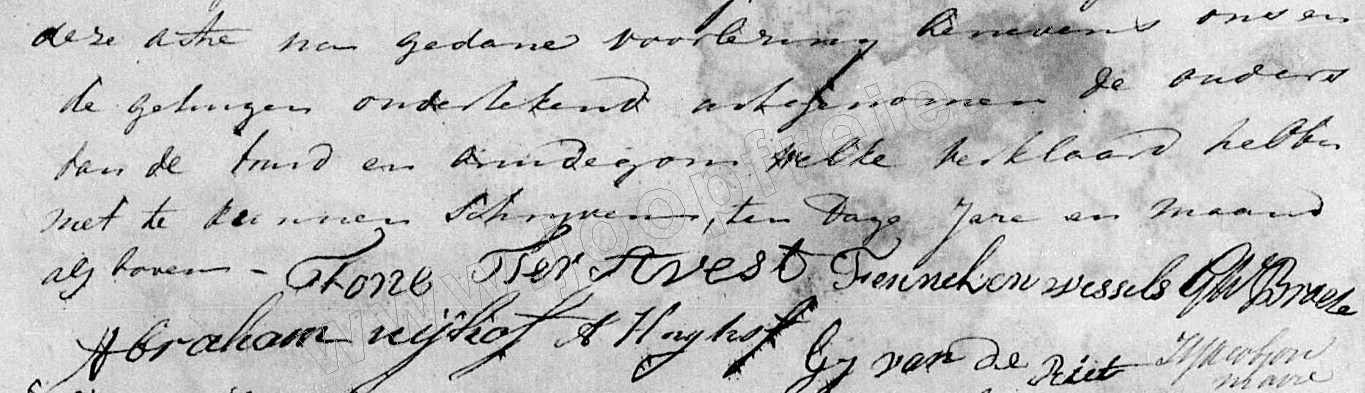 deze acte na gedane voorlezing benevens ons en
de getuigen ondertekend uitgenomen de ouders
van de bruid en bruidegom welke verklaard hebben
niet te kunnen schryven, ten dage Jare en maand
als boven - Tone Ter Avest Fenneken wessels GW Broeze
Abraham nijhof A Huyhof Gj van de Riet
maire
www.joopfreije